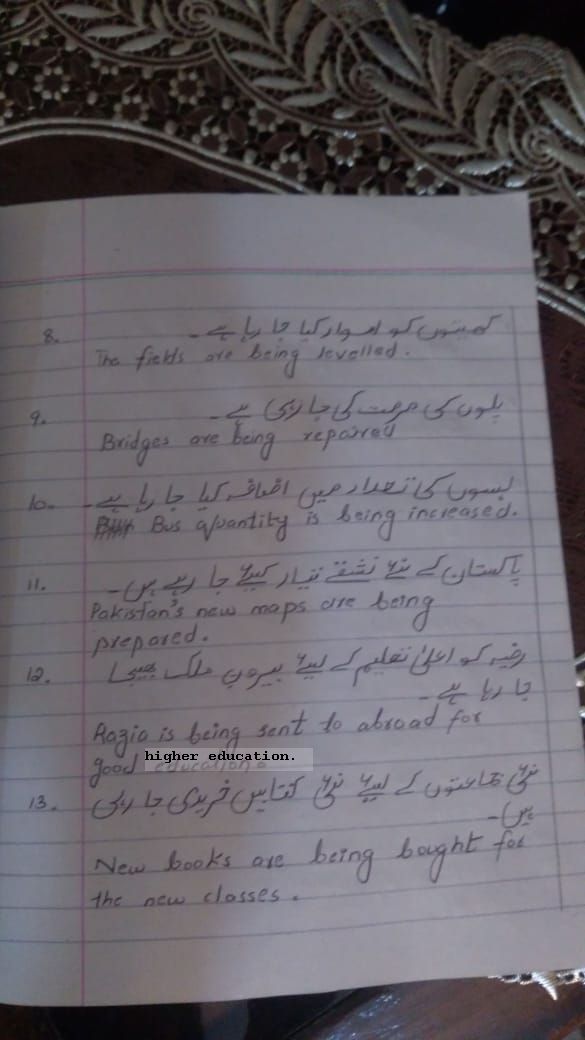 8. کھیتوں کو ہموار کیا جا رہا ہے۔
The fields are being levelled.
9. پلوں کی مرمت کی جا رہی ہے۔
Bridges are being repaired
10. بسوں کی تعداد میں اضافہ کیا جا رہا ہے۔
Bus quantity is being increased.
11. پاکستان کے نئے نقشے تیار کیئے جا رہے ہیں۔
Pakistan's new maps are being
prepared.
12. رضیہ کو اعلیٰ تعلیم کے لیئے بیرون ملک بھیجا
جا رہا ہے۔
Razia is being sent to abroad for
good higher education.
13. نئی جماعتوں کے لیئے نئی کتابیں خریدی جا رہی
ہیں۔
New books are being bought for
the new classes.